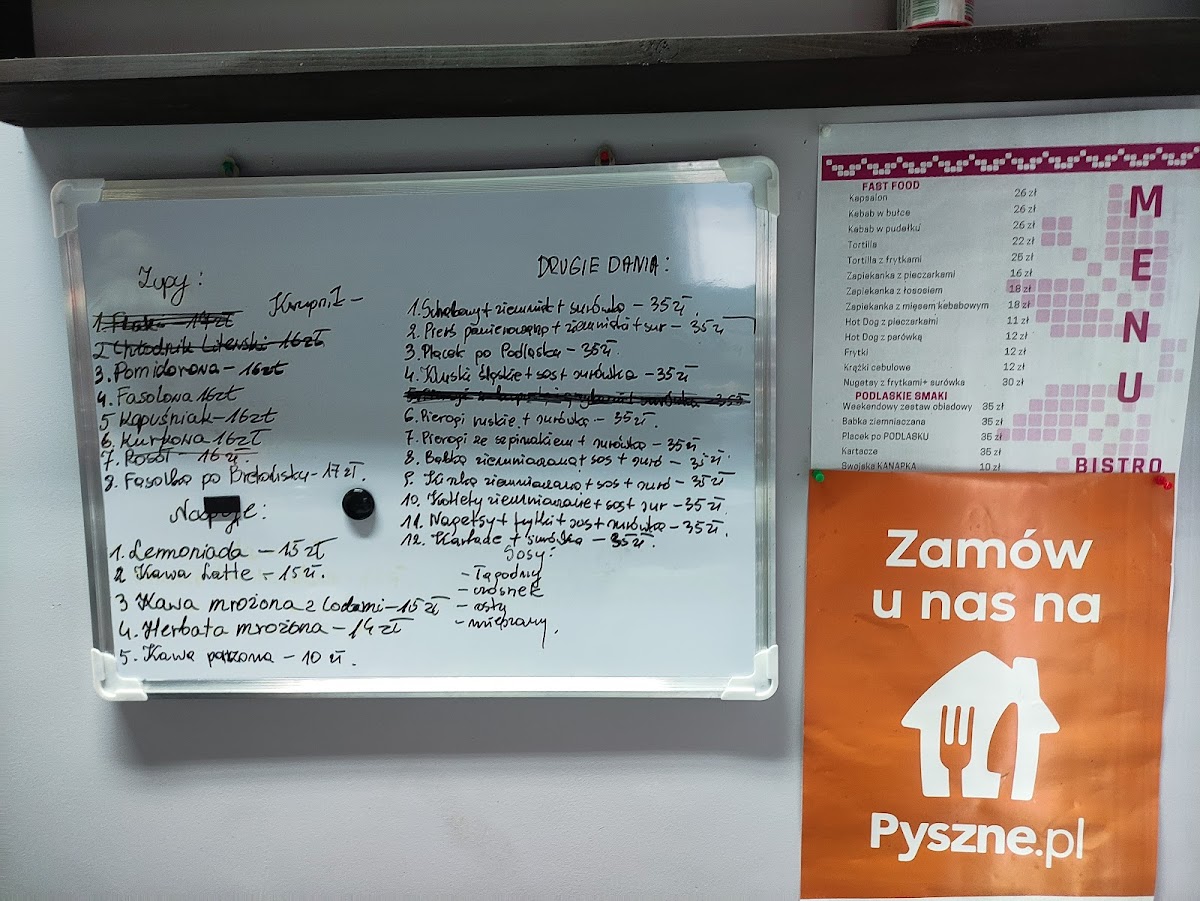 Zupy:
Krupnik –
1. Flaki – 17 zł
2 Chłodnik Litewski 16 zł
3. Pomidorowa – 16 zł
4. Fasolowa 16 zł
5 Kapuśniak – 16 zł
6. Kurkowa 16 zł
7. Rosół – 16 zł
8. Fasolka po Bretońsku – 17 zł.
Napoje:
1. Lemoniada – 15 zł
2 Kawa Latte – 15 zł.
3 Kawa mrożona z Lodami – 15 zł
4. Herbata mrożona – 14 zł
5. Kawa parzona – 10 zł.
DRUGIE DANIA:
1. Schabowy + ziemniaki + surówka – 35 zł
2. Pierś panierowana + ziemniaki + sur – 35 zł
3. Placek po Podlasku – 35 zł.
4. Kluski śląskie + sos + surówka – 35 zł
6. Pierogi ruskie + surówka – 35 zł.
7. Pierogi ze szpinakiem + surówka – 35 zł
8. Babka ziemniaczana + sos + suró – 35 zł.
9. Kiszka ziemniaczana + sos + suró – 35 zł
10. Kotlety ziemniaczane + sos + sur – 35 zł.
11. Nagetsy + frytki + sos + surówka – 35 zł.
12. + surówka – 35 zł.
Sosy:
– Łagodny
– czosnek
– ostry
– mieszany.
MENU
BISTRO
FAST FOOD
Kapsalon 26 zł
Kebab w bułce 26 zł
Kebab w pudełku 26 zł
Tortilla 22 zł
Tortilla z frytkami 25 zł
Zapiekanka z pieczarkami 16 zł
Zapiekanka z łososiem 18 zł
Zapiekanka z mięsem kebabowym 18 zł
Hot Dog z pieczarkami 11 zł
Hot Dog z parówką 12 zł
Frytki 12 zł
Krążki cebulowe 12 zł
Nugetsy z frytkami+ surówka 30 zł
PODLASKIE SMAKI
Weekendowy zestaw obiadowy 35 zł
Babka ziemniaczana 35 zł
Placek po PODLASKU 35 zł
Kartacze 35 zł
Swojska KANAPKA 10 zł
Zamów
u nas na
Pyszne.pl